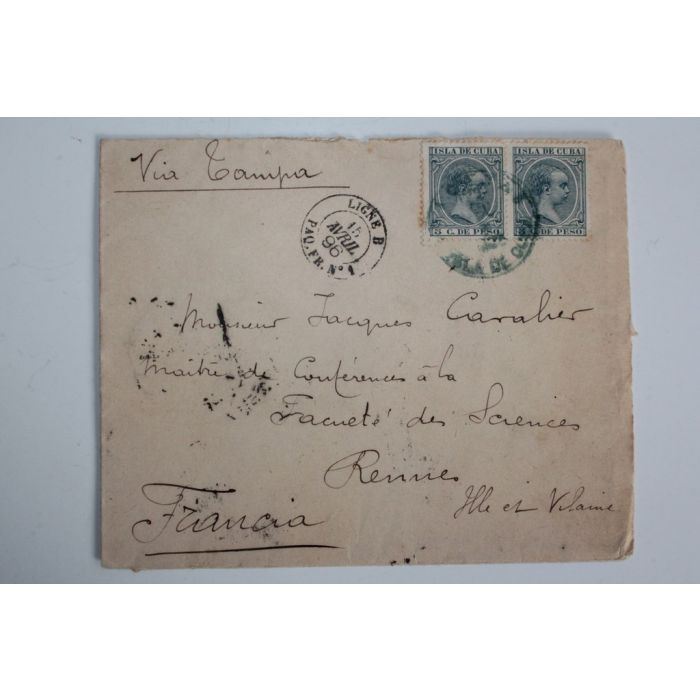 Via Tampa
ISLA DE CUBA
5 C. DE PESO
ISLA DE CUBA
5 C. DE PESO
ISLA DE
LIGNE B
15
AVRIL
96
PAQ. FR. Nº 1
Monsieur Jacques Cavalier
Maître de Conférences à la
Faculté des Sciences
Rennes
Ille et Vilaine
Francia